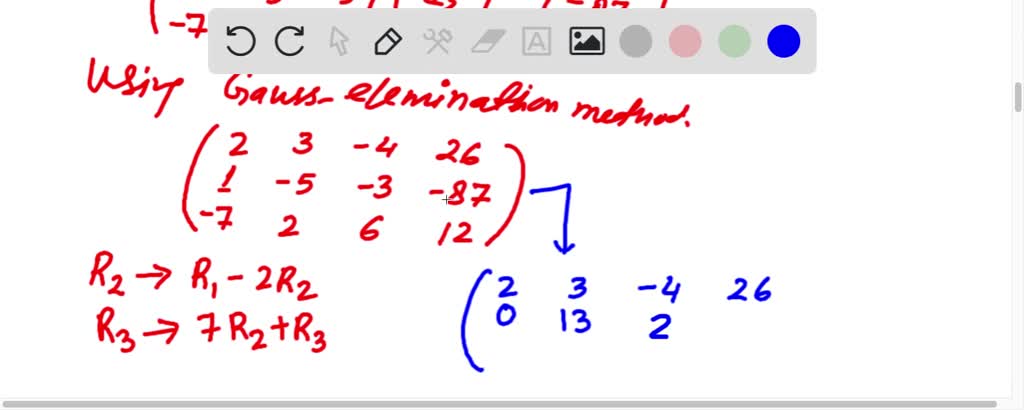 -7
Using Gauss-elemination method.
2 3 -4 26
1 -5 -3 -87
-7 2 6 12
R2 → R1 - 2R2
R3 → 7R2 + R3
2 3 -4 26
0 13 2